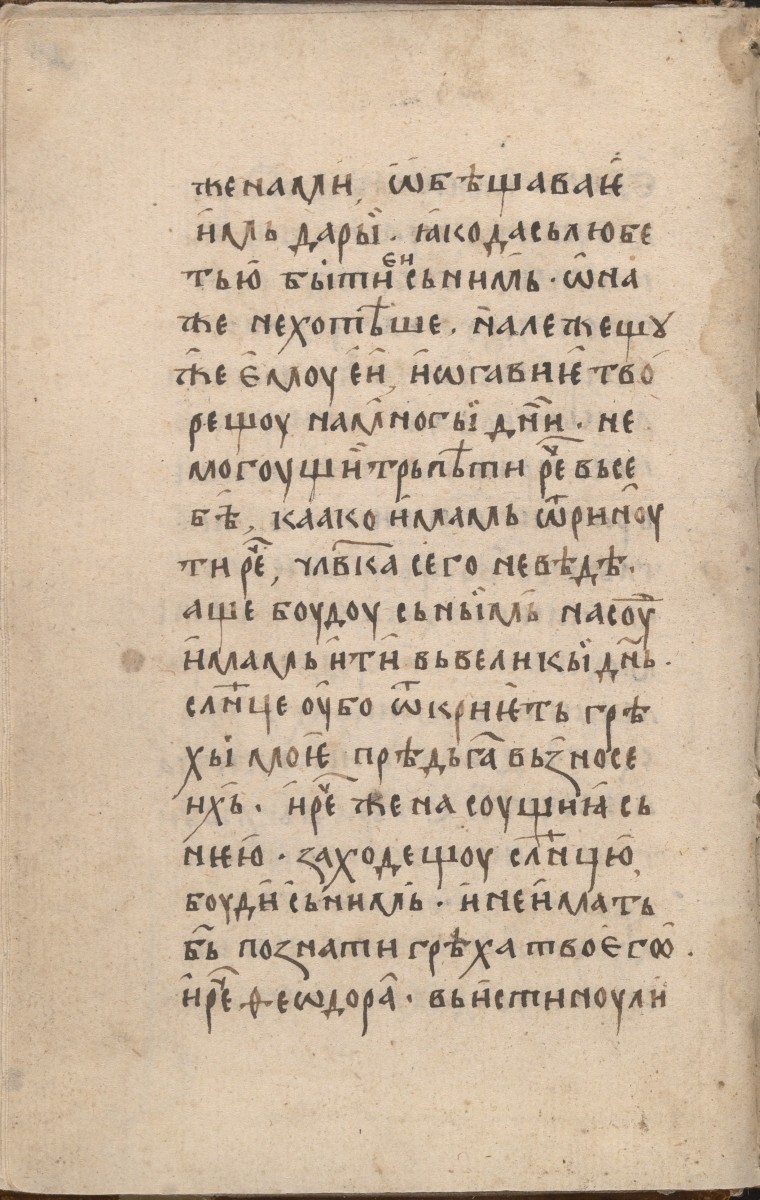 женами, ѡ҆бѣщаваѥ҆
и҆мь дары̏. ꙗ҆кода сьлюбе
тью҆ бы́ти ен сьни́мь. ѡ҆на
же нехотѣ́ше. належещꙋ
же є҆моу е҆и҆, и҆ѡгавниѥ тво
рещоу намно́гы̏ дн҃и. не
могоущи трьпѣти рⷱ҇е вьсе
бѣ, каако и҆мамь ѿри́ноу
ти рⷱ҇е, чл҃вка сего невѣдѣ.
аще боудоу сьны́мь насоуⷣ
и҆мамь и҆ти́ вьвеликы̏ дн҃ь.
слн҃це оу҆бо ѿкриѥть грѣ
хы̏ моѥ҆ прѣдьг҃а вьзносе
ихь. и҆рⷱ҇е жена соущиꙗ сь
нѥю҆. заходещоу слн҃цю,
боуди сьнимь. и҆неи҆мать
б҃ь познати грѣха твоѐгѡ.
и҆рⷱ҇е ѳеѡдора. вьи҆стиноу ли